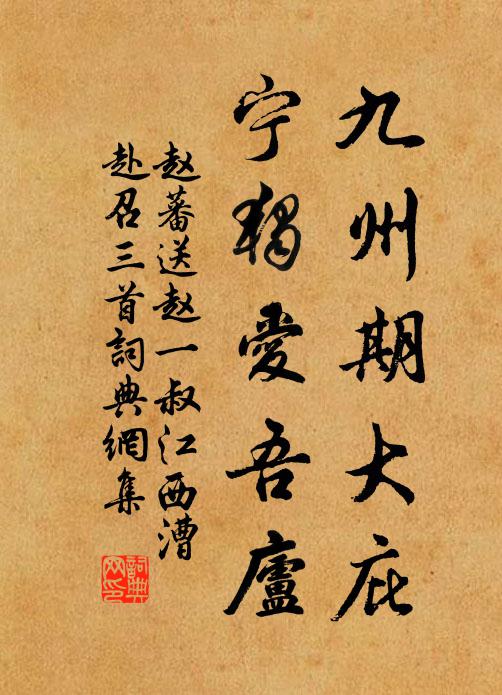 九州期大庇
宁独爱吾廬
赵蕃送赵一叔江西漕
赴召三首詞典網集
詞典
网印